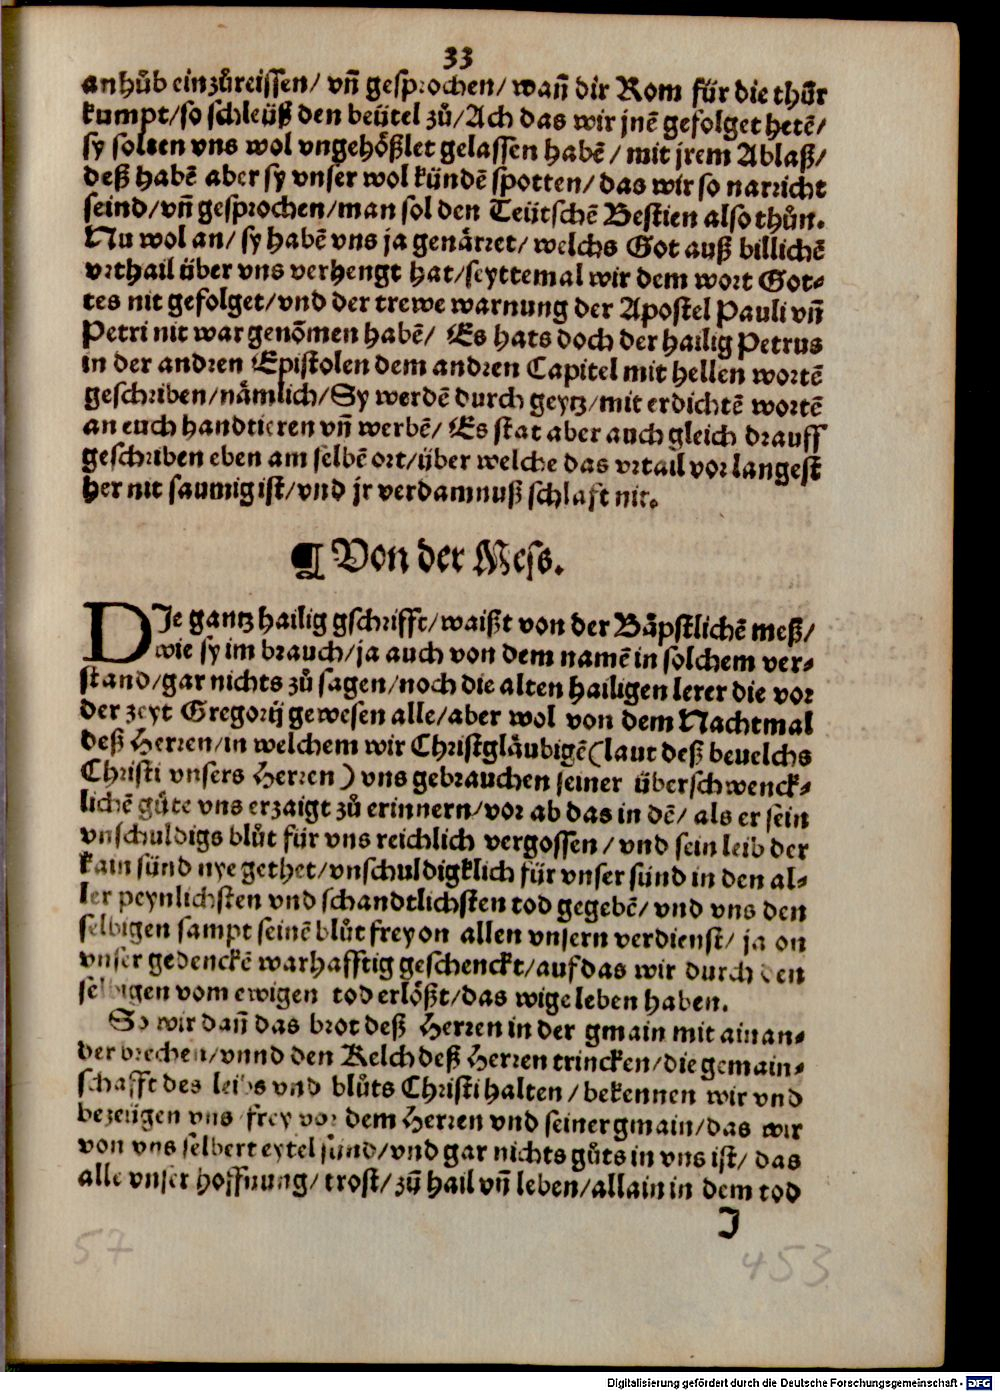 33
anhůb einzůreissen/ vñ gesprochen/ wañ dir Rom für die thůr
kumpt/so schleüß den beütel zů/Ach das wir jnē gefolget hetē/
sy solten vns wol vngehößlet gelassen habē/ mit jrem Ablaß/
deß habē aber sy vnser wol kündē spotten/ das wir so narricht
seind/vñ gesprochen/man sol den Teütschē Bestien also thůn.
Nu wol an/ sy habē vns ja genärret/ welchs Got auß billichē
vrthail über vns verhengt hat/seyttemal wir dem wort Got⸗
tes nit gefolget/vnd der trewe warnung der Apostel Pauli vñ
Petri nit war genom̄en habē/ Es hats doch der hailig Petrus
in der andren Epistolen dem andren Capitel mit hellen wortē
geschriben/nämlich/Sy werdē durch geytz/mit erdichtē wortē
an euch handtieren vñ werbē/ Es stat aber auch gleich drauff
geschriben eben am selbē ort/über welche das vrtail vor langest
her nit saumig ist/vnd jr verdamnuß schlaft nit.
¶ Von der Mess.
DIe gantz hailig gschrifft/waißt von der Bäpstlichē meß/
wie sy im brauch/ja auch von dem namē in solchem ver⸗
stand/gar nichts zů sagen/noch die alten hailigen lerer die vor
der zeyt Gregorij gewesen alle/aber wol von dem Nachtmal
deß Herren/in welchem wir Christgläubigē(laut deß beuelchs
Christi vnsers Herren) vns gebrauchen seiner überschwenck⸗
lichē gůte vns erzaigt zů erinnern/vor ab das in dē/ als er sein
vnschuldigs blůt für vns reichlich vergossen/ vnd sein leib der
kain sünd nye gethet/vnschuldigklich für vnser sünd in den al⸗
ler peynlichsten vnd schandtlichsten tod gegebē/ vnd vns den
selbigen sampt seinē blůt frey on allen vnsern verdienst/ ja on
vnser gedenckē warhafftig geschenckt/auf das wir durch den
selbigen vom ewigen tod erlößt/das wige leben haben.
So wir dañ das brot deß Herren in der gmain mit ainan⸗
der brechen/vnnd den Kelch deß Herren trincken/die gemain⸗
schafft des leibs vnd blůts Christi halten/ bekennen wir vnd
bezeügen vns frey vor dem Herren vnd seiner gmain/das wir
von vns selbert eytel sünd/vnd gar nichts gůts in vns ist/ das
alle vnser hoffnung/ trost/ zů hail vñ leben/allain in dem tod
J
57
453
Digitalisierung gefördert durch die Deutsche Forschungsgemeinschaft - DFG